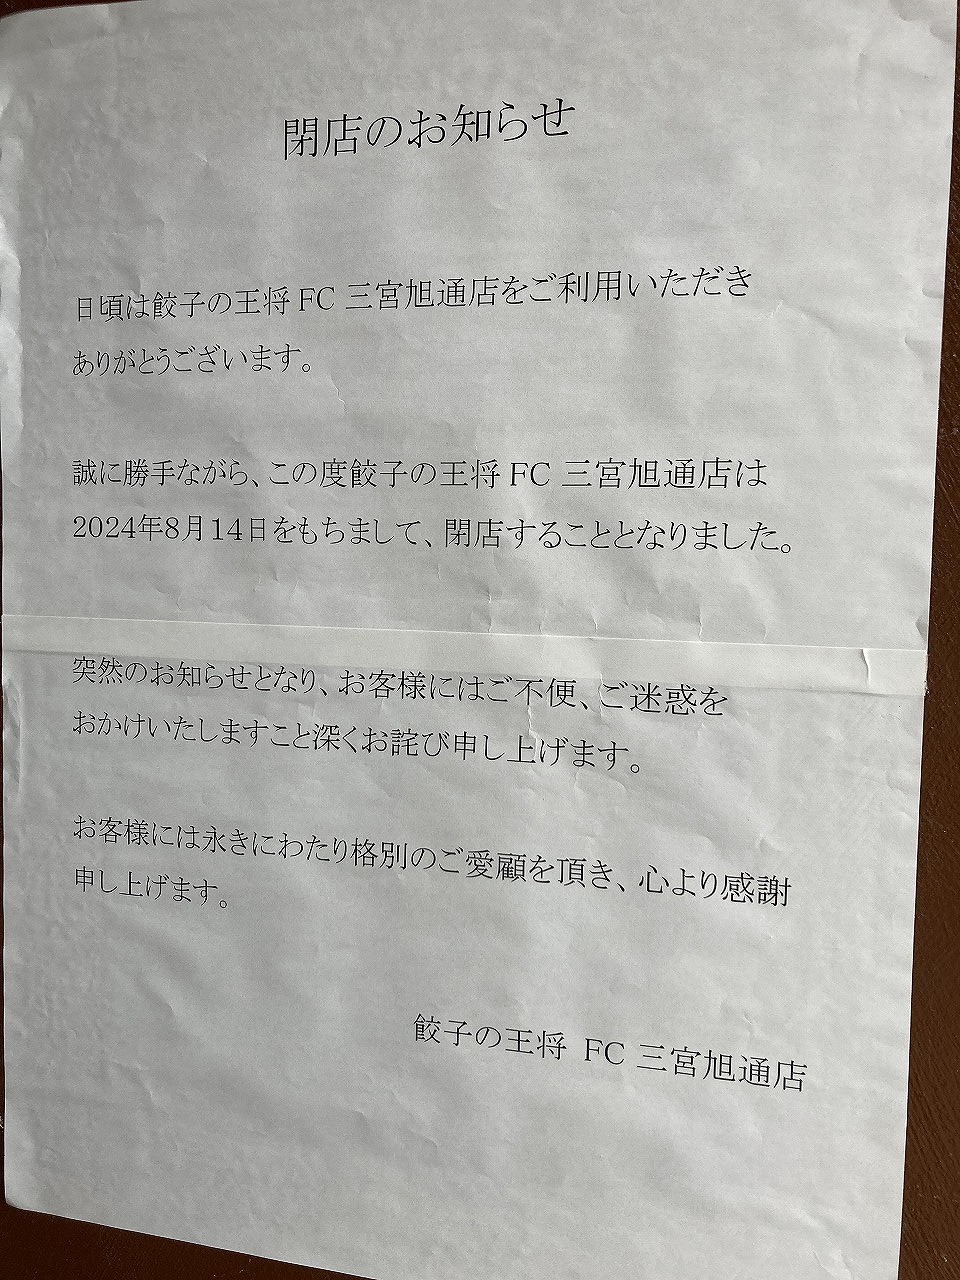 閉店のお知らせ
日頃は餃子の王将 FC 三宮旭通店をご利用いただき
ありがとうございます。
誠に勝手ながら、この度餃子の王将 FC 三宮旭通店は
2024年8月14日をもちまして、閉店することとなりました。
突然のお知らせとなり、お客様にはご不便、ご迷惑を
おかけいたしますこと深くお詫び申し上げます。
お客様には永きにわたり格別のご愛顧を頂き、心より感謝
申し上げます。
餃子の王将 FC 三宮旭通店